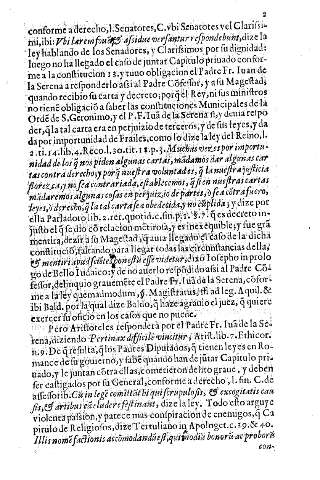 2
conforme a derecho, l. Senatores, C. vbi Senatores vel Clarissi-
mi, ibi: Vbi larem fouẽt, & assidue versantur respondebunt, dize la
ley hablando de los Senadores, y Clarissimos por su dignidad:
luego no ha llegado el caso de juntar Capitulo priuado confor-
me a la constitucion 12. y tuuo obligacion el Padre Fr. Iuan de
la Serena a responderlo assi al Padre Cõfessor, y a su Magestad,
quando recibio su carta y decreto; porq̃ el Rey, ni sus ministros
no tienẽ obligaciõ a saber las constituciones Municipales de la
Ordẽ de S. Geronimo, y el P. F. Iuã de la Serena si, y deuia respõ-
der, q̃ la tal carta era en perjuizio de terceros, y de sus leyes, y da
da por importunidad de Frailes, como lo dize la ley del Reino, l.
2. tit. 14. lib. 4. Reco. l. 30. tit. 18. p. 3. Muchas vezes por importu-
nidad de los q̃ nos piden algunas cartas, mãdamos dar algunas car
tas contra derecho, y por q̃ nuestra voluntad es, q̃ la nuestra justicia
florezca, y no sea contrariada, establecemos, q̃ si en nuestras cartas
mãdaremos algunas cosas en perjuizio de partes, q̃ sea cõtra fuero,
leyes, ò derecho, q̃ la tal carta sea obedecida, y no cũplida; y dize por
ella Parladoro lib. 2. rer. quotid. c. fin. p. 1. §. 7. q̃ es decreto in-
justo el q̃ se dio cõ relacion mẽtirosa, y es inexequible, y fue grã
mentira, dezir a su Magestad, q̃ auia llegado el caso de la dicha
constituciõ, faltando para llegar todas las circunstancias della,
& mentiri apud cõstet honestũ esse videtur, dixo Iosepho in prolo
go de Bello Iudaico: y de no auerlo respõdido assi al Padre Cõ-
fessor, delinquio grauemẽte el Padre Fr. Iuã de la Serena, cõfor-
me a la ley quemadmodum, §. Magistratus, ff. ad leg. Aquil. &
ibi Bald. por la qual dize Baldo, q̃ haze agrauio el juez, q̃ quiere
exercer su oficio en los casos que no puede.
Pero Aristoteles responderà por el Padre Fr. Iuã de la Se-
rena, diziendo Pertinax difficile vincitur, Arist. lib. 7. Ethicor.
n. 9. De q̃ resulta, q̃ los Padres Diputados, q̃ tienen leyes en Ro-
mance de su gouierno, y sabẽ quando han de jũtar Capitulo pri-
uado, y le juntan cõtra ellas, cometieron delito graue, y deuen
ser castigados por su General, conforme a derecho, l. fin. C. de
assessorib. Cũ in lege cõmittũt hi quiscrupulosis, & excogitatis cau
sis, & artibus excludere festinant, dize la ley. Todo esto arguye
violenta passion, y parece mas conspiracion de enemigos, q̃ Ca
pirulo de Religiosos, dize Tertuliano in Apologet. c. 39. & 40.
Illis nomẽ factionis accõmodandũ est, qui in odiũ bonorũ ac proborũ
con-